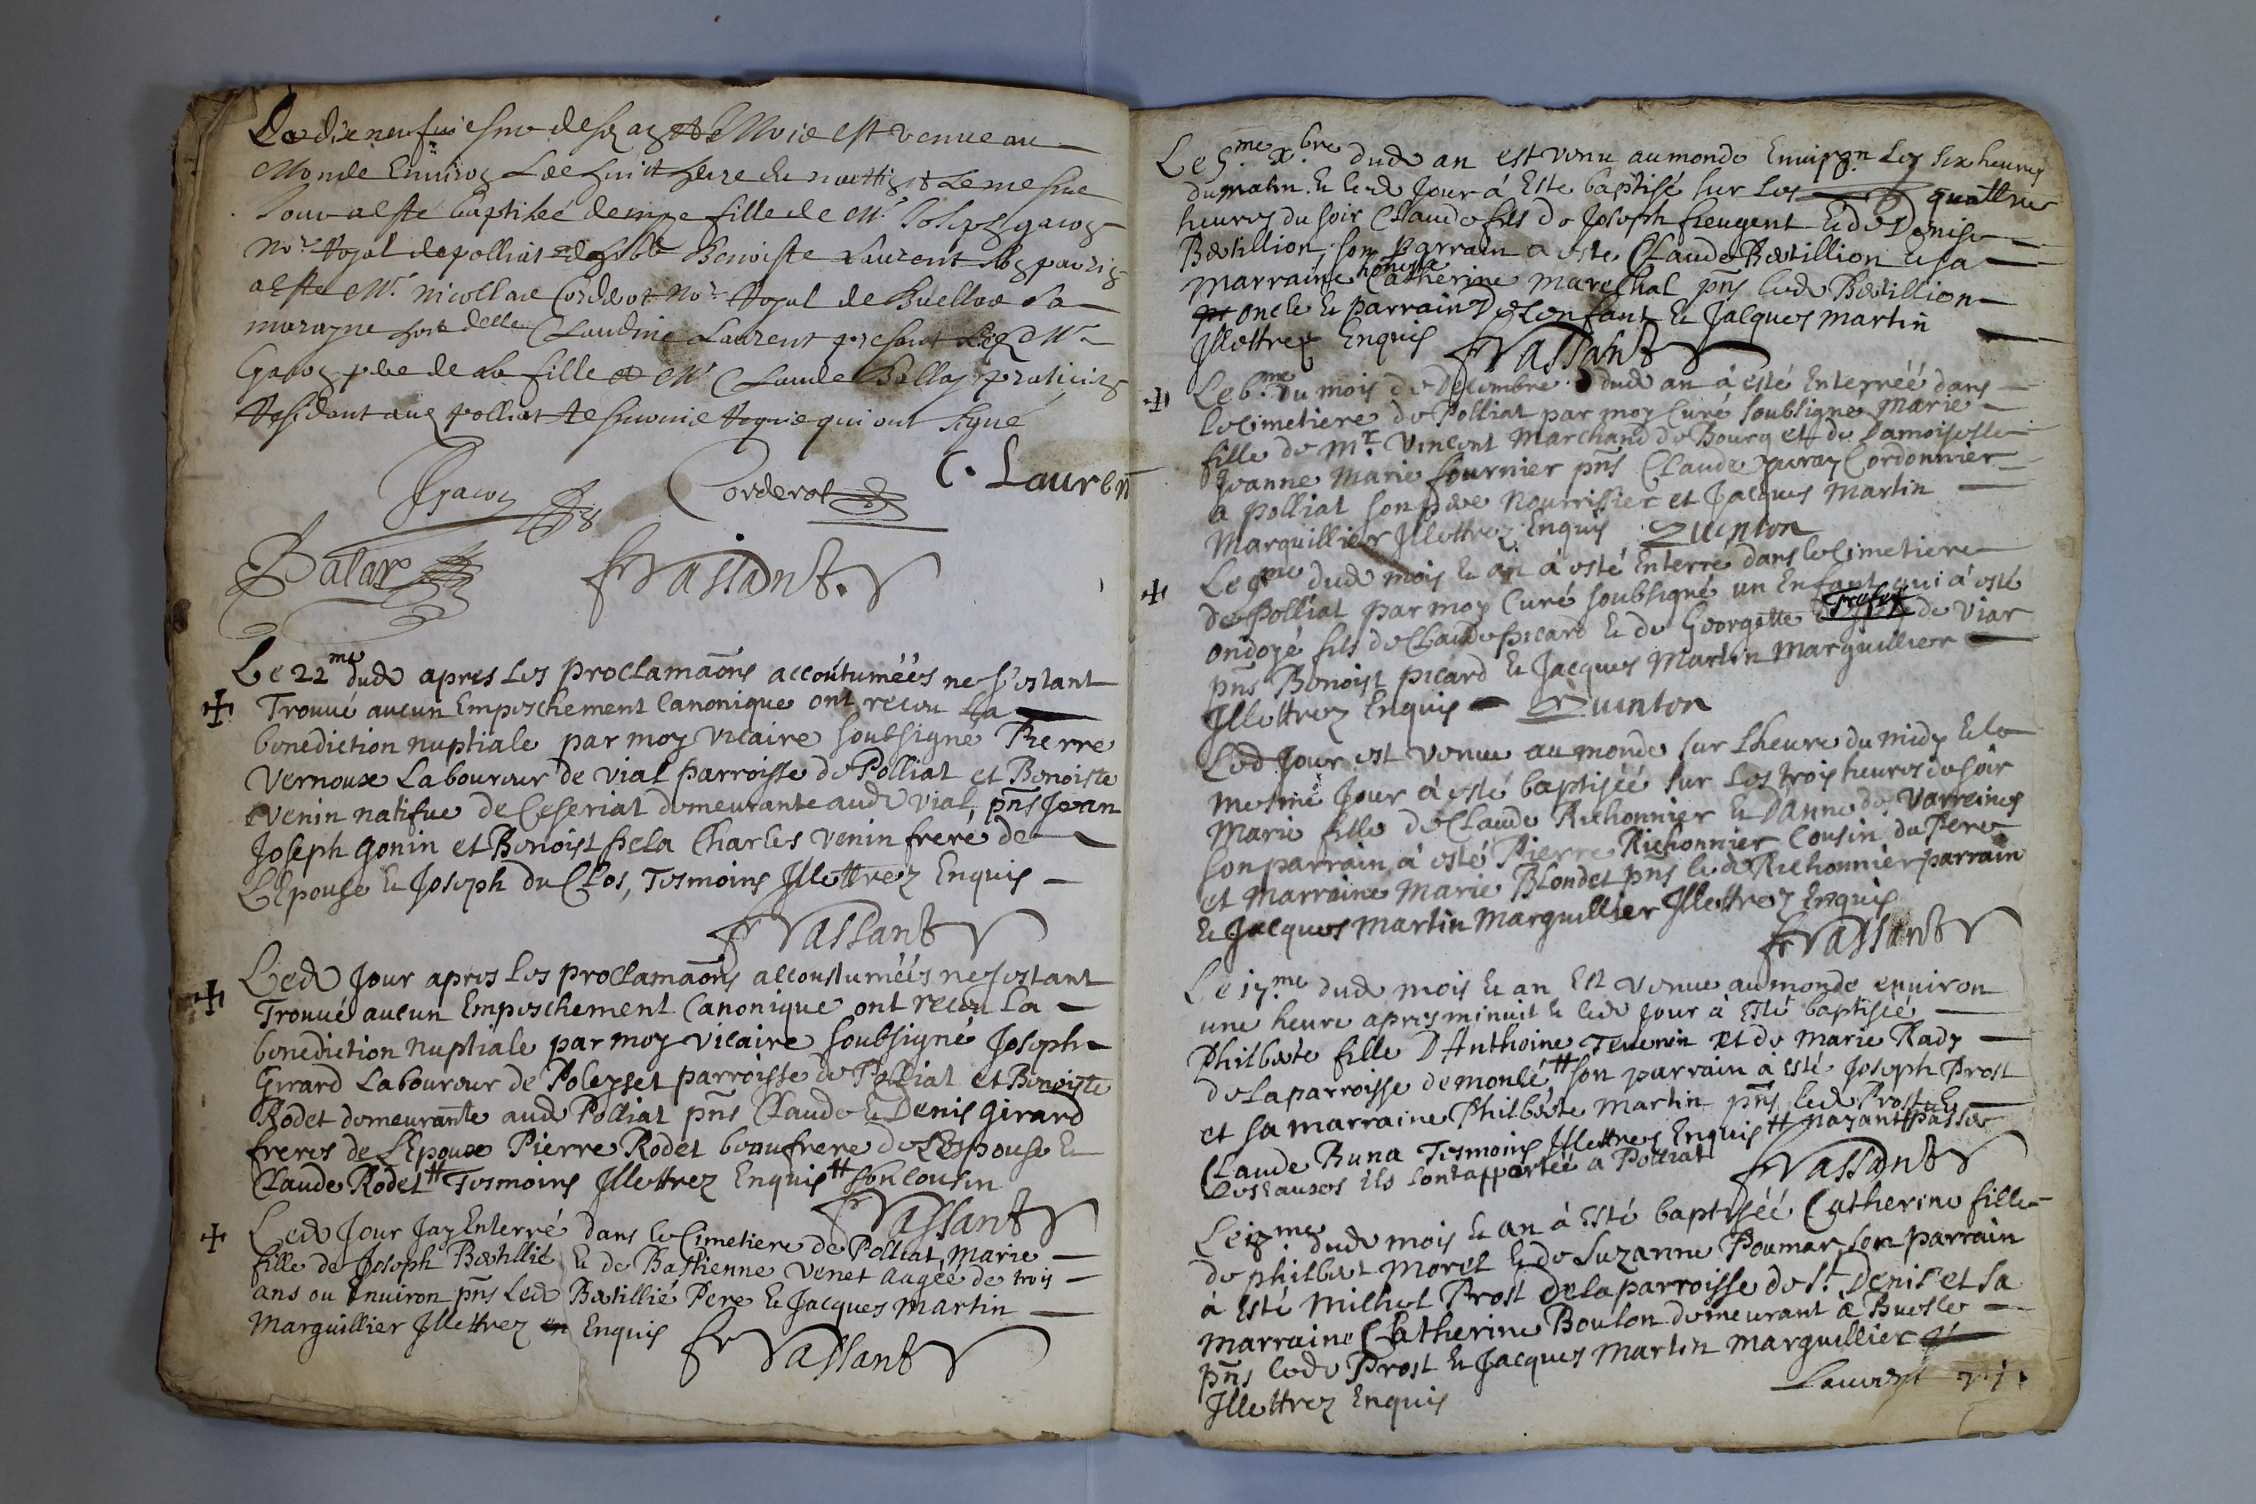 Le dixneufviesme desd an & Mois est venue au
Monde Environ Les huict heure du mattin & Le mesme
Jour a esté baptisée denyse fille de Mr Joseph gacon
nore Royal de polliat & de Benoiste Laurent son parrin
a esté Mr nicollas Corderot nore Royal de Buellas sa
marayne delle Claudine Laurent present Led Mr
Gacon pere de la fille & Mr Claude Ballay praticien
Residant aud polliat tesmoins Requis qui ont signé
Jgacon Corderot C. Laurent
Balay frVassant
Le 22me dud apres Les proclamaõns accoutumées ne s'estant
Trouvé aucun Empeschement Canonique ont recou La
benediction nuptiale par moy vicaire soubsigné Pierre
Vernoux Laboureur de vial parroisse de Polliat et Benoiste
Venin natifue de Ceseriat demeurante aud Vial pñs Jean
Joseph gonin et Benoist fiela Charles Venin frere de
L'Epouse & Joseph du Clos, Tesmoins Illettrez Enquis
frVassant
Led Jour apres Les proclamaõns accoustumées ne s'estant
Trouvé aucun Empeschement Canonique ont recou La
benediction nuptiale par moy Vicaire soubsigné Joseph
Girard Laboureur de Poleyset parroisse de Polliat et Benoiste
Rodet demeurante aud Polliat pñs Claude & Denis Girard
freres de L'Epoux Pierre Rodet beaufrere de L'Espouse &
Claude Rodet # Tesmoins Illettrez Enquis # son cousin
frVassant
Led Jour Jay Enterré dans le Cimetiere de Polliat Marie
fille de Joseph Bretillié & de Bastienne Venet aagée de trois
ans ou Environ pñs Led Bretillié Pere & Jacques Martin
Marguillier Illettrez Enquis frVassant
Le 5.me xbre dud an est venu au monde Environ Les six heures
du matin & led Jour á Esté baptisé sur Les quattre
heures du soir Claude fils de Joseph freugent & de Denise
Bretillion, son parrain a esté Claude Bretillion & sa
marraine honeste Catherine Marechal pñs led Bretillion
oncle & parrain de Lenfant & Jacques Martin
Illettrez Enquis frVassant
Le 6.me du mois de Decembre dud an á esté Enterréé dans
le Cimetiere de Polliat par moy Curé soubsigné Marie
fille de Mr. Vincent Marchand de Bourg et de Damoiselle
Jeanne Marie fournier pñs Claude puray Cordonnier
a polliat son pere nourrissier et Jacques Martin
Marguillier Illettrez Enquis Quinton
Le 9me dud mois & an á esté Enterré dans le Cimetiere
de Polliat par moy Curé soubsigné un Enfant qui á esté
ondoyé fils de Claude picard & de Georgette de Viar
pñs Benoist picard & Jacques Martin Marguillier
Illettrez Enquis Quinton
Led. Jour est venue au monde sur L'heure du midy & le
mesme Jour á esté baptisée sur Les trois heures du soir
Marie fille de Claude Richonnier & D'Anne de Varreines
son parrain á esté Pierre Richonnier Cousin du Pere
et Marraine Marie Blondet pñs led Richonnier parrain
& Jacques Martin Marguillier Illettrez Enquis
frVassant
Le 17.me dud mois & an Est venue au monde environ
une heure apres minuit & led Jour á Esté baptisée
Philberte fille D'Anthoine Tevenin et de Marie Rady
de La parroisse de moncé # son parrain á Esté Joseph Prost
et sa marraine Philberte Martin pñs led Prost &
Claude Buna Tesmoins Illettrez Enquis # nayant passer
Les eauxes ils Lont apportée a Polliat frVassant
Le me dud mois & an á Esté baptisée Catherine fille
de philbert Morel & de Suzanne Poumar son parrain
á Esté Michel Prost de La parroisse de St. Denis et sa
marraine Catherine Boulon demeurant á Buelle
pñs led Prost & Jacques Martin Marguillier
Illettrez Enquis